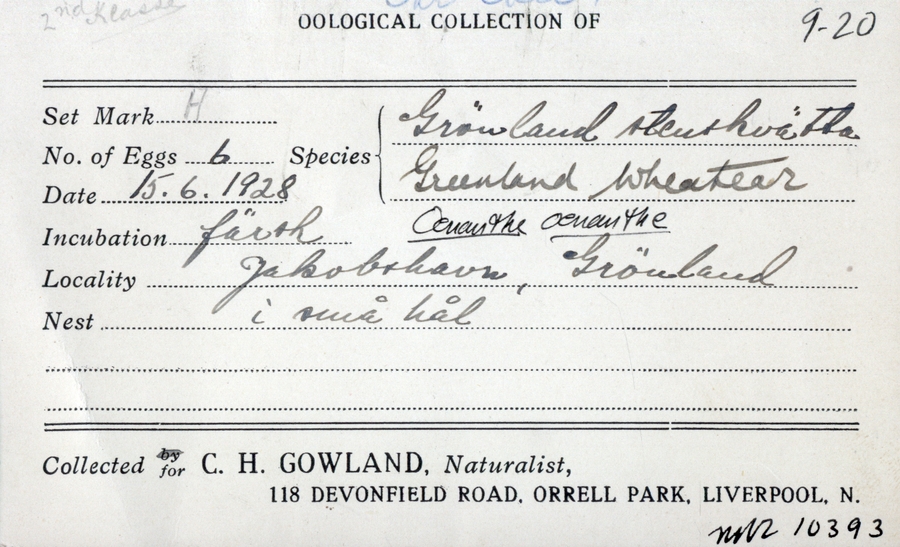 2nd Klasse
OOLOGICAL COLLECTION OF
9-20
Set Mark H
No. of Eggs 6 Species Grönland stenskvätta
Date 15.6.1928 Greenland Wheatear
Oenanthe oenanthe
Incubation färsk
Locality Jakobshavn, Grönland
Nest i små hål
Collected by for C. H. GOWLAND, Naturalist,
118 DEVONFIELD ROAD, ORRELL PARK, LIVERPOOL, N.
10393